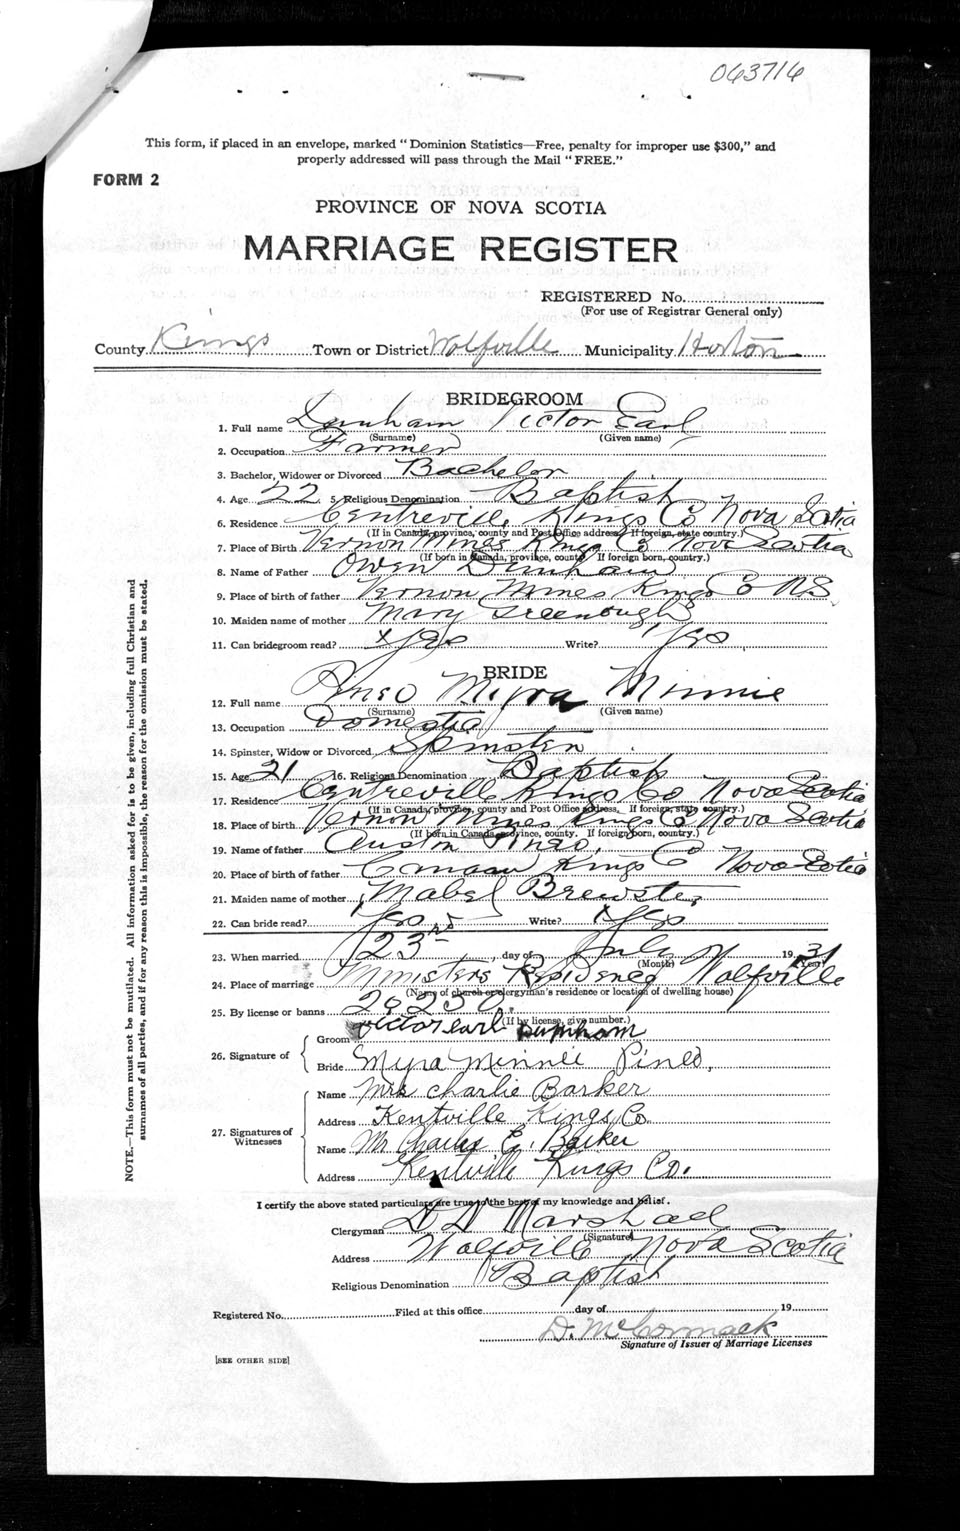 063716
This form, if placed in an envelope, marked "Dominion Statistics—Free, penalty for improper use $300," and
properly addressed will pass through the Mail "FREE."
FORM 2
PROVINCE OF NOVA SCOTIA
MARRIAGE REGISTER
REGISTERED No.
(For use of Registrar General only)
County Kings Town or District Wolfville Municipality Horton
BRIDEGROOM
1. Full name Durnham Victor Earl
(Surname) (Given name)
2. Occupation Farmer
3. Bachelor, Widower or Divorced Bachelor
4. Age 22 5. Religious Denomination Baptist
6. Residence Centreville Kings Co Nova Scotia
(If in Canada, province, county and Post Office address. If foreign, state country.)
7. Place of Birth Vernon Mines Kings Co Nova Scotia
(If born in Canada, province, county. If foreign born, country.)
8. Name of Father Owen Durnham
9. Place of birth of father Vernon Mines Kings Co NS
10. Maiden name of mother Mary Greenough
11. Can bridegroom read? Yes Write? Yes
BRIDE
12. Full name Pineo Myra Minnie
(Surname) (Given name)
13. Occupation Domestic
14. Spinster, Widow or Divorced Spinster
15. Age 21 16. Religious Denomination Baptist
17. Residence Centreville Kings Co Nova Scotia
(If in Canada, province, county and Post Office address. If foreign, state country.)
18. Place of birth Vernon Mines Kings Co Nova Scotia
(If born in Canada, province, county. If foreign born, country.)
19. Name of father Austin Pineo
20. Place of birth of father Canaan Kings Co Nova Scotia
21. Maiden name of mother Mabel Brewster
22. Can bride read? Yes Write? Yes
23. When married 23rd day of July 1931
(Month) (Year)
24. Place of marriage Ministers Residence Wolfville
(Name of church or clergyman's residence or location of dwelling house)
25. By license or banns 26250
(If by license, give number.)
26. Signature of Groom Victor earl Durnham
Bride Myra Minnie Pineo,
27. Signatures of Witnesses
Name Mrs Charlie Barker
Address Kentville Kings Co.
Name Mr Charles E. Barker
Address Kentville Kings Co.
I certify the above stated particulars are true to the best of my knowledge and belief.
Clergyman Marshall
(Signature)
Address Wolfville Nova Scotia
Religious Denomination Baptist
Registered No. Filed at this office day of 19
D. McCormack
Signature of Issuer of Marriage Licenses
[SEE OTHER SIDE]
NOTE.—This form must not be mutilated. All information asked for is to be given, including full Christian and
surnames of all parties, and if for any reason this is impossible, the reason for the omission must be stated.